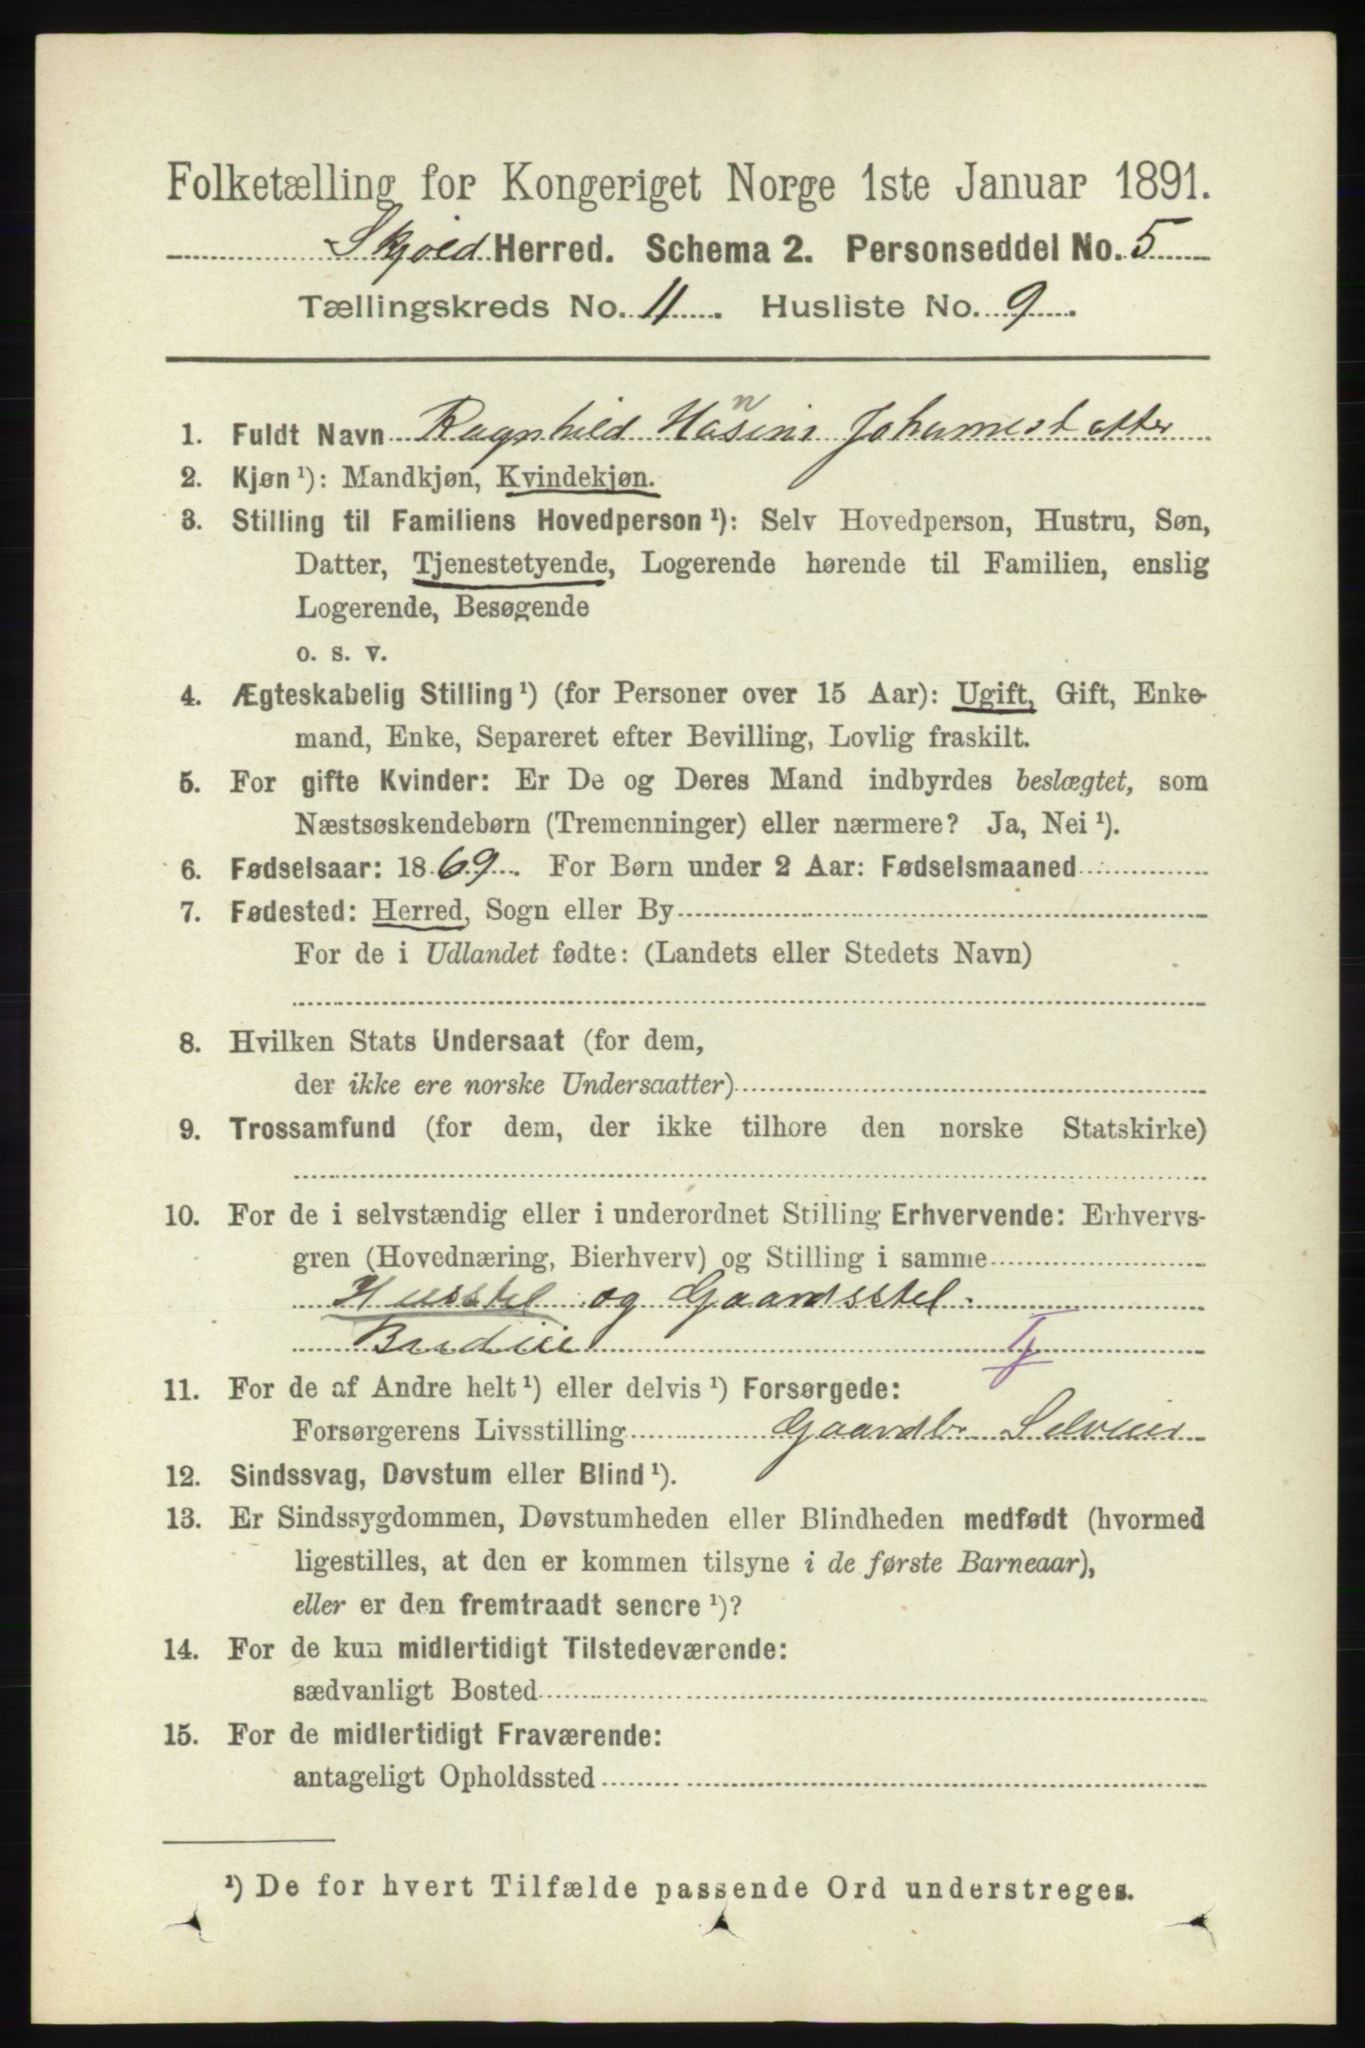 Folketælling for Kongeriget Norge 1ste Januar 1891.
Skjold Herred. Schema 2. Personseddel No. 5
Tællingskreds No. 11. Husliste No. 9.
1. Fuldt Navn Ragnhild Hansine Johannesdatter
2. Kjøn ¹): Mandkjøn, Kvindekjøn.
3. Stilling til Familiens Hovedperson ¹): Selv Hovedperson, Hustru, Søn,
Datter, Tjenestetyende, Logerende hørende til Familien, enslig
Logerende, Besøgende
o. s. v.
4. Ægteskabelig Stilling ¹) (for Personer over 15 Aar): Ugift, Gift, Enke-
mand, Enke, Separeret efter Bevilling, Lovlig fraskilt.
5. For gifte Kvinder: Er De og Deres Mand indbyrdes beslægtet, som
Næstsøskendebørn (Tremenninger) eller nærmere? Ja, Nei ¹).
6. Fødselsaar: 1869. For Børn under 2 Aar: Fødselsmaaned
7. Fødested: Herred, Sogn eller By
For de i Udlandet fødte: (Landets eller Stedets Navn)
8. Hvilken Stats Undersaat (for dem,
der ikke ere norske Undersaatter)
9. Trossamfund (for dem, der ikke tilhøre den norske Statskirke)
10. For de i selvstændig eller i underordnet Stilling Erhvervende: Erhvervs-
gren (Hovednæring, Bierhverv) og Stilling i samme
Husstel og Gaardsstel.
Tj
11. For de af Andre helt ¹) eller delvis ¹) Forsørgede:
Forsørgerens Livsstilling Gaardbr Selveier
12. Sindssvag, Døvstum eller Blind ¹).
13. Er Sindssygdommen, Døvstumheden eller Blindheden medfødt (hvormed
ligestilles, at den er kommen tilsyne i de første Barneaar),
eller er den fremtraadt senere ¹)?
14. For de kun midlertidigt Tilstedeværende:
sædvanligt Bosted
15. For de midlertidigt Fraværende:
antageligt Opholdssted
¹) De for hvert Tilfælde passende Ord understreges.